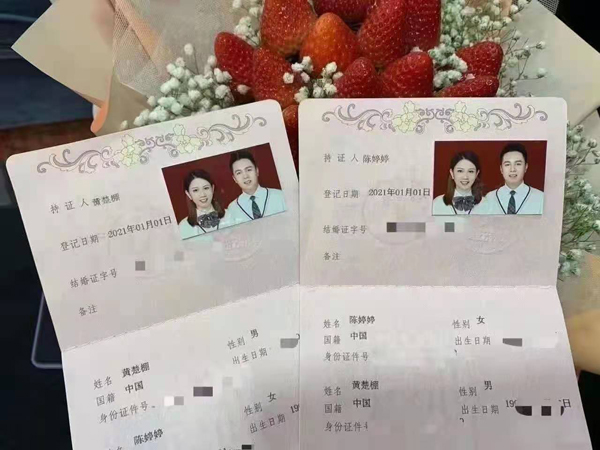 持 证 人 黄楚棚
登记日期 2021年01月01日
结婚证字号
备注
姓名 黄楚棚 性别 男
国籍 中国 出生日期
身份证件号
陈婷婷 性别 女
出生日期 19
持 证 人 陈婷婷
登记日期 2021年01月01日
结婚证字号
备注
姓名 陈婷婷 性别 女
国籍 中国 出生日期
身份证件号
姓名 黄楚棚 性别 男
国籍 中国 出生日期 19 日
身份证件